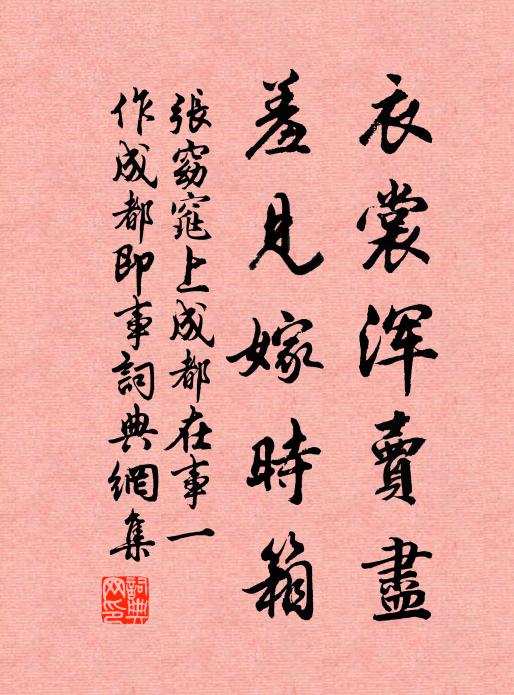 衣裳浑賣盡
羞見嫁時箱
張窈窕上成都在事一
作成都即事詞典網集
詞典网印